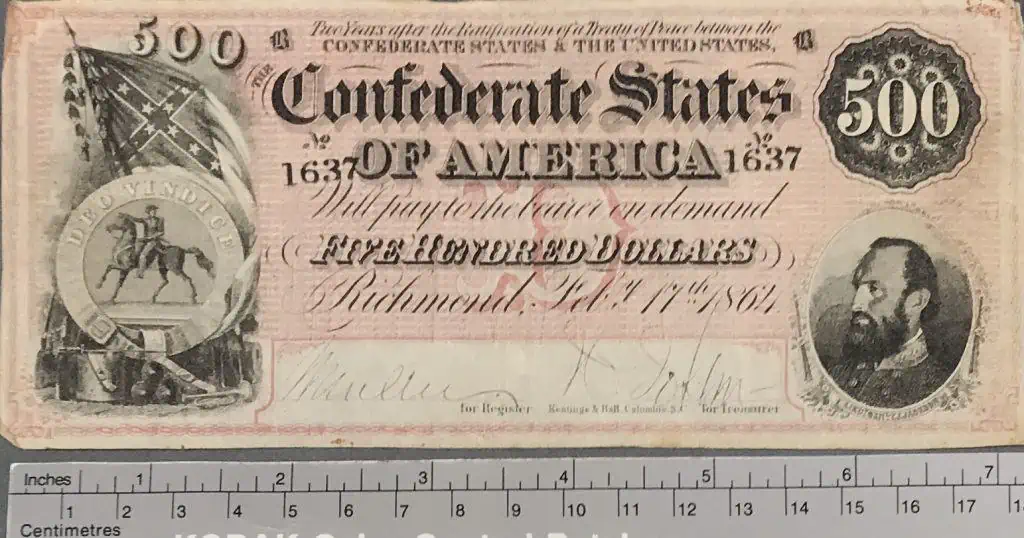 500
B Two Years after the Ratification of a Treaty of Peace between the B
CONFEDERATE STATES & THE UNITED STATES,
THE
Confederate States
500
No No
1637 OF AMERICA 1637
Will pay to the bearer on demand
DEO VINDICE
FIVE HUNDRED DOLLARS
Richmond, Feby. 17th 1864
for Register Keatinge & Ball, Columbia, S.C. for Treasurer
Inches 1 2 3 4 5 6 7
1 2 3 4 5 6 7 8 9 10 11 12 13 14 15 16 17
Centimetres